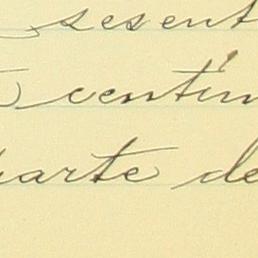 sesent
centím
parte de